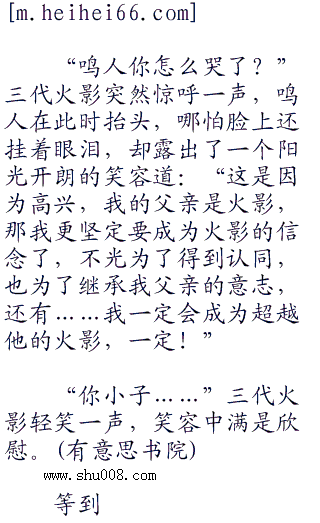 [m.heihei66.com]
“鸣人你怎么哭了？”
三代火影突然惊呼一声，鸣
人在此时抬头，哪怕脸上还
挂着眼泪，却露出了一个阳
光开朗的笑容道：“这是因
为高兴，我的父亲是火影，
那我更坚定要成为火影的信
念了，不光为了得到认同，
也为了继承我父亲的意志，
还有……我一定会成为超越
他的火影，一定！”
“你小子……”三代火
影轻笑一声，笑容中满是欣
慰。(有意思书院)
www.shu008.com
等到